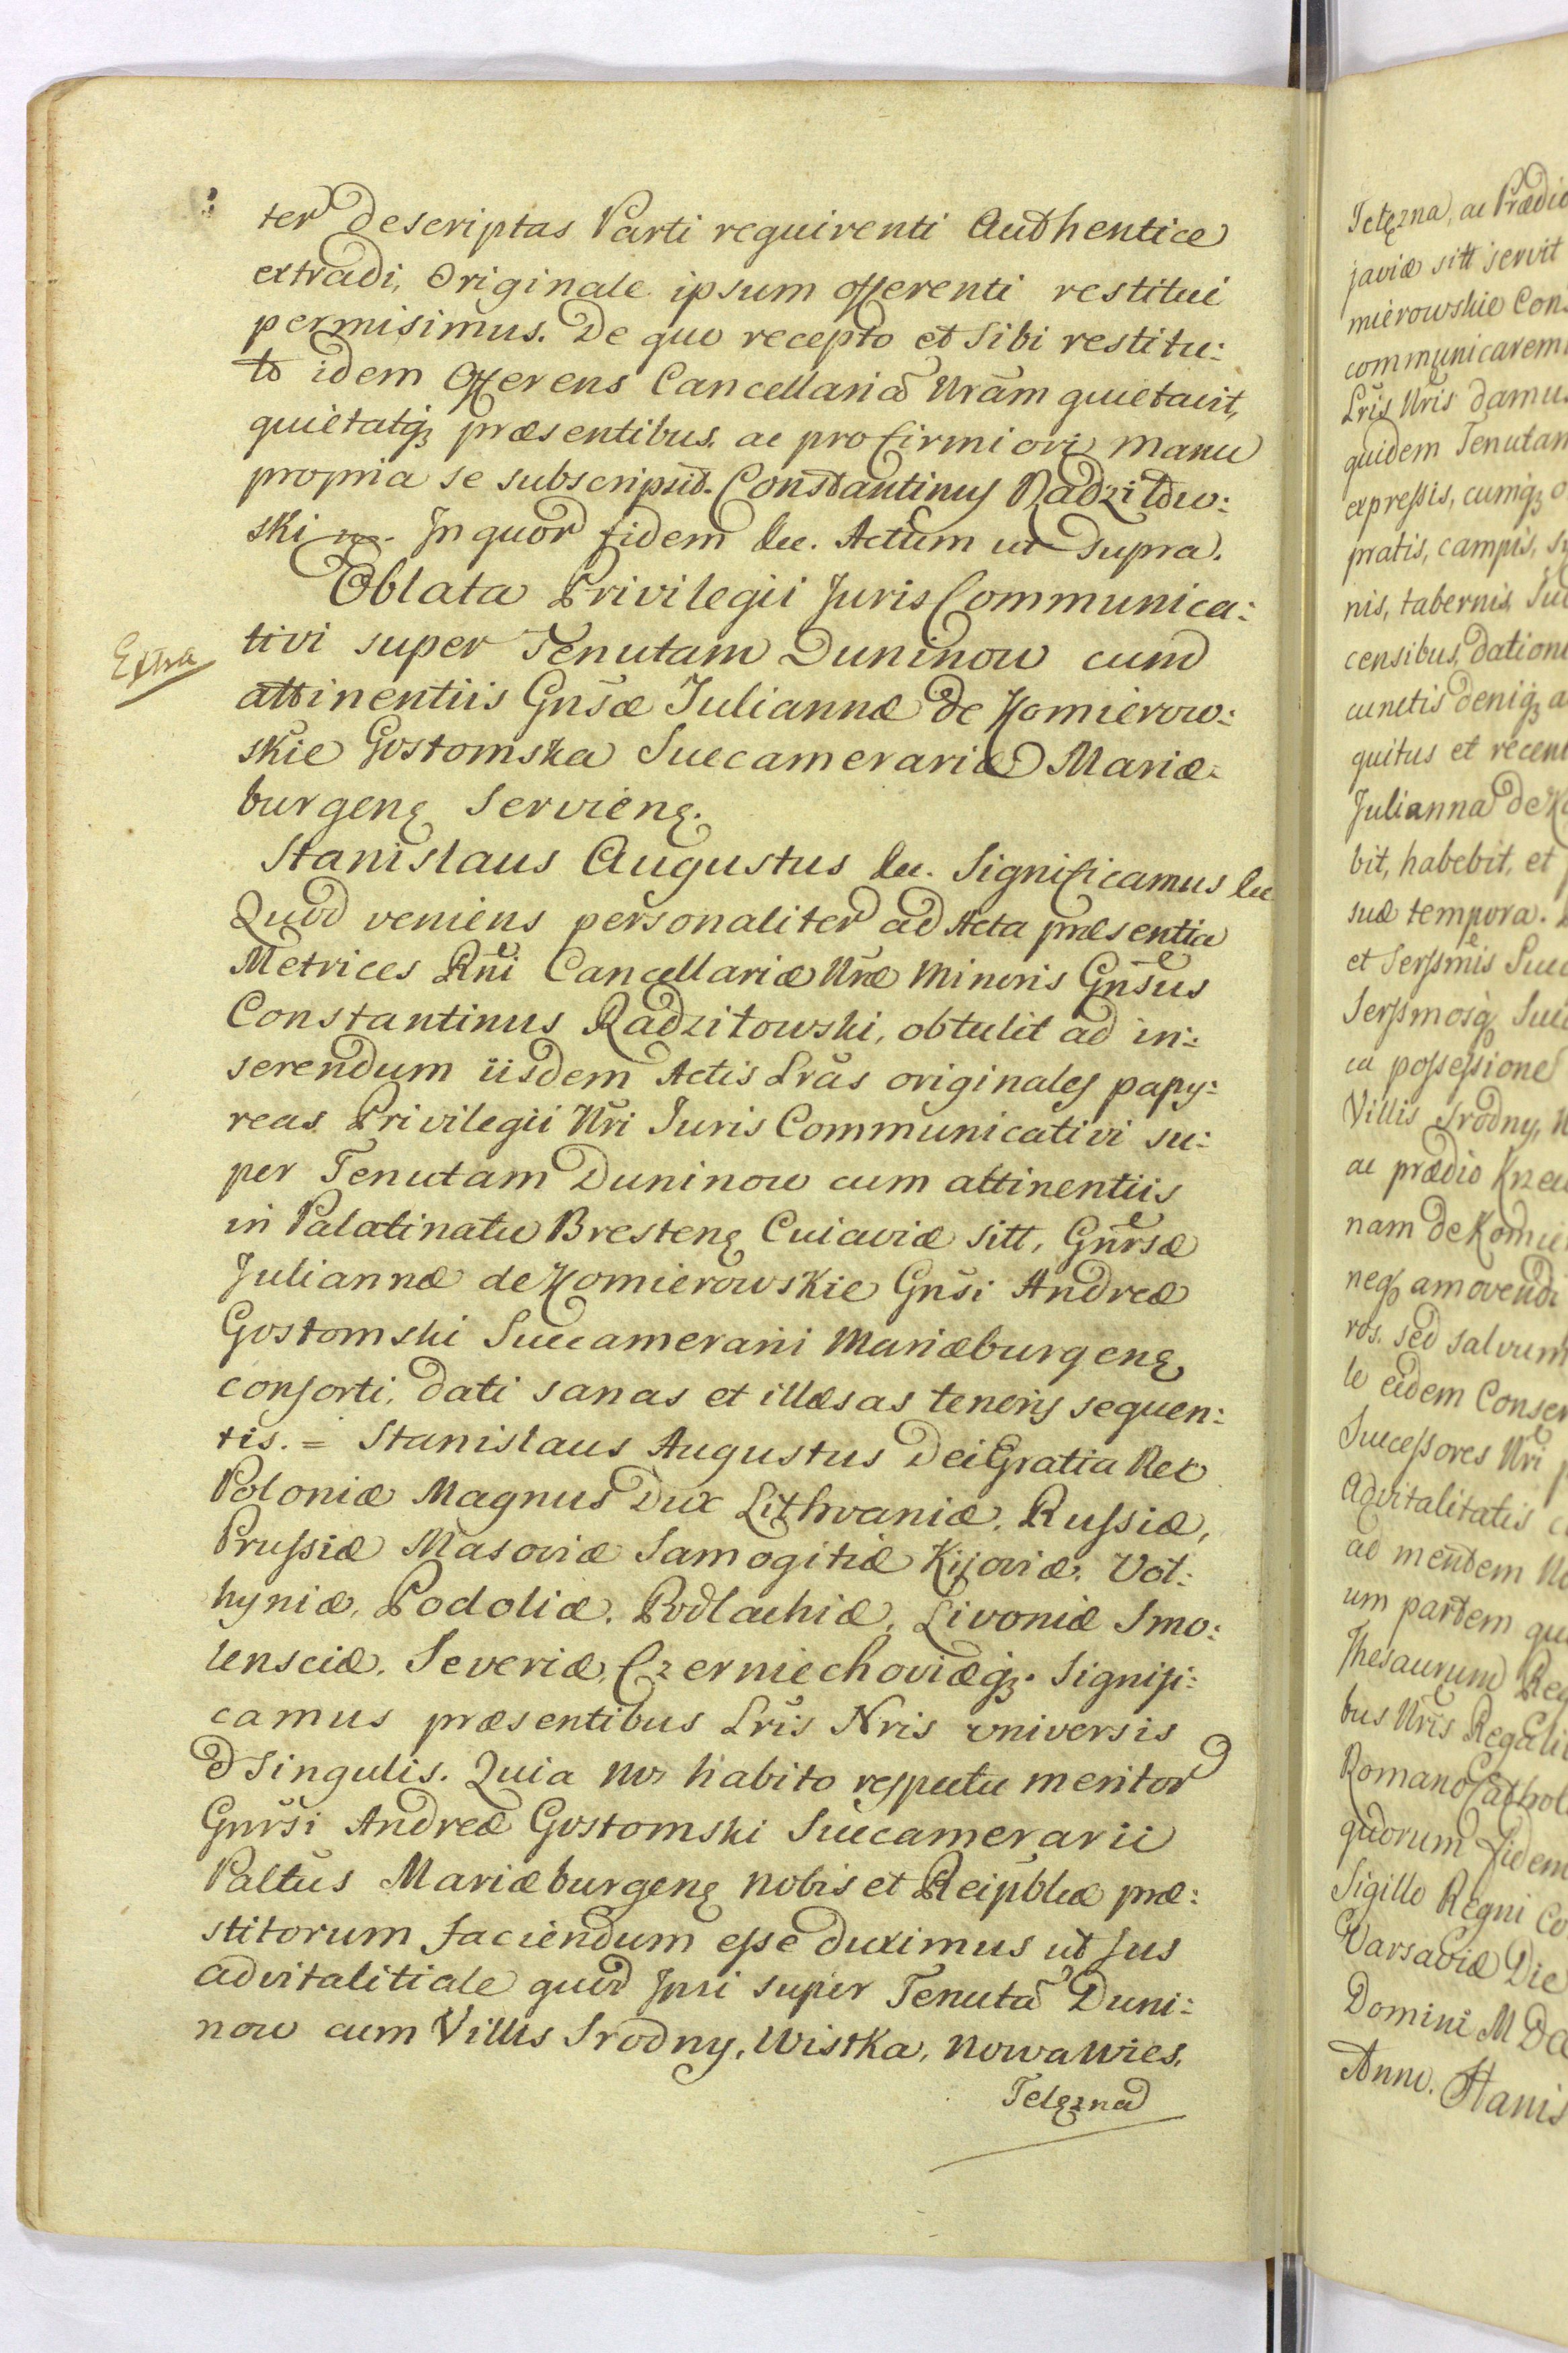 ter descriptas Parti requirenti Authentice
extradi, Originale ipsum offerenti restitui
permisimus. De quo recepto et Sibi restitu:
to idem Offerens Cancellariã Nrãm quietavit,
quietatq; præsentibus. ac pro firmiori manu
propria se subscripsit. Constantinus Radzitow:
ski mp. In quor fidem &c. Actum ut supra.
Oblata Privilegii Juris Communica:
Extra
tivi super Tenutam Duninow cum
attinentiis Gnsæ Juliannæ de Komierow:
skie Gostomska Succamerariæ Mariæ:
burgenę Servienę.
Stanislaus Augustus &c. Significamus &c
Quod veniens personaliter ad Acta præsentia
Metrices Rni Cancellariæ Nræ Minoris Gnsus
Constantinus Radzitowski, obtulit ad in:
serendum iisdem Actis Lras originales papy:
reas Privilegii Nri Juris Communicativi su:
per Tenutam Duninow cum attinentiis
in Palatinatu Brestenę Cuiaviæ sitt, Gnrsæ
Juliannæ de Komierowskie Gnsi Andreæ
Gostomski Succamerarii Mariæburgenę
consorti, dati sanas et illæsas tenoris sequen:
tis. = Stanislaus Augustus Dei Gratia Rex
Poloniæ Magnus Dux Lithvaniæ, Russiæ,
Prussiæ Masoviæ Samogitiæ Kijoviæ, Vol:
hyniæ, Podoliæ, Podlachiæ, Livoniæ Smo:
lensciæ, Severiæ, Czerniechoviæq;. Signifi:
camus præsentibus Lris Nris universis
& Singulis. Quia Nos habito respectu meritor
Gnrsi Andreæ Gostomski Succamerarii
Paltus Mariæburgenę nobis et Reipblcæ præ:
stitorum faciendum esse duximus ut Jus
advitalitiale quod Ipsi super Tenutã Duni:
now cum Villis Srodny, Wistka, Nowawies,
Telęzna
Telęzna, ac Prædio
javiæ sitt servit
mierowskie Cons
communicarem
Lris Nris damus
quidem Tenutam
expressis, cumq; o
pratis, campis, s
nis, tabernis, Su
censibus, datione
cunctis deniq; a
quitus et recen
Julianna de Ko
bit, habebit, et p
suæ tempora.
et Serssmis Succ
Serssmosq; Succ
ca possessione
Villis Srodny, N
ac prædio Kne
nam de Komie
neq; amovendi
ros. sed salvum
le eidem Conser
Successores Nri p
Advitalitatis c
ad mentem No
um partem qu
Thesaurum Reg
bus Nris Regali
Romano Cathol
quorum fidem
Sigillo Regni Co
Varsaviæ Die
Domini M Dcc
Anno. Stanis